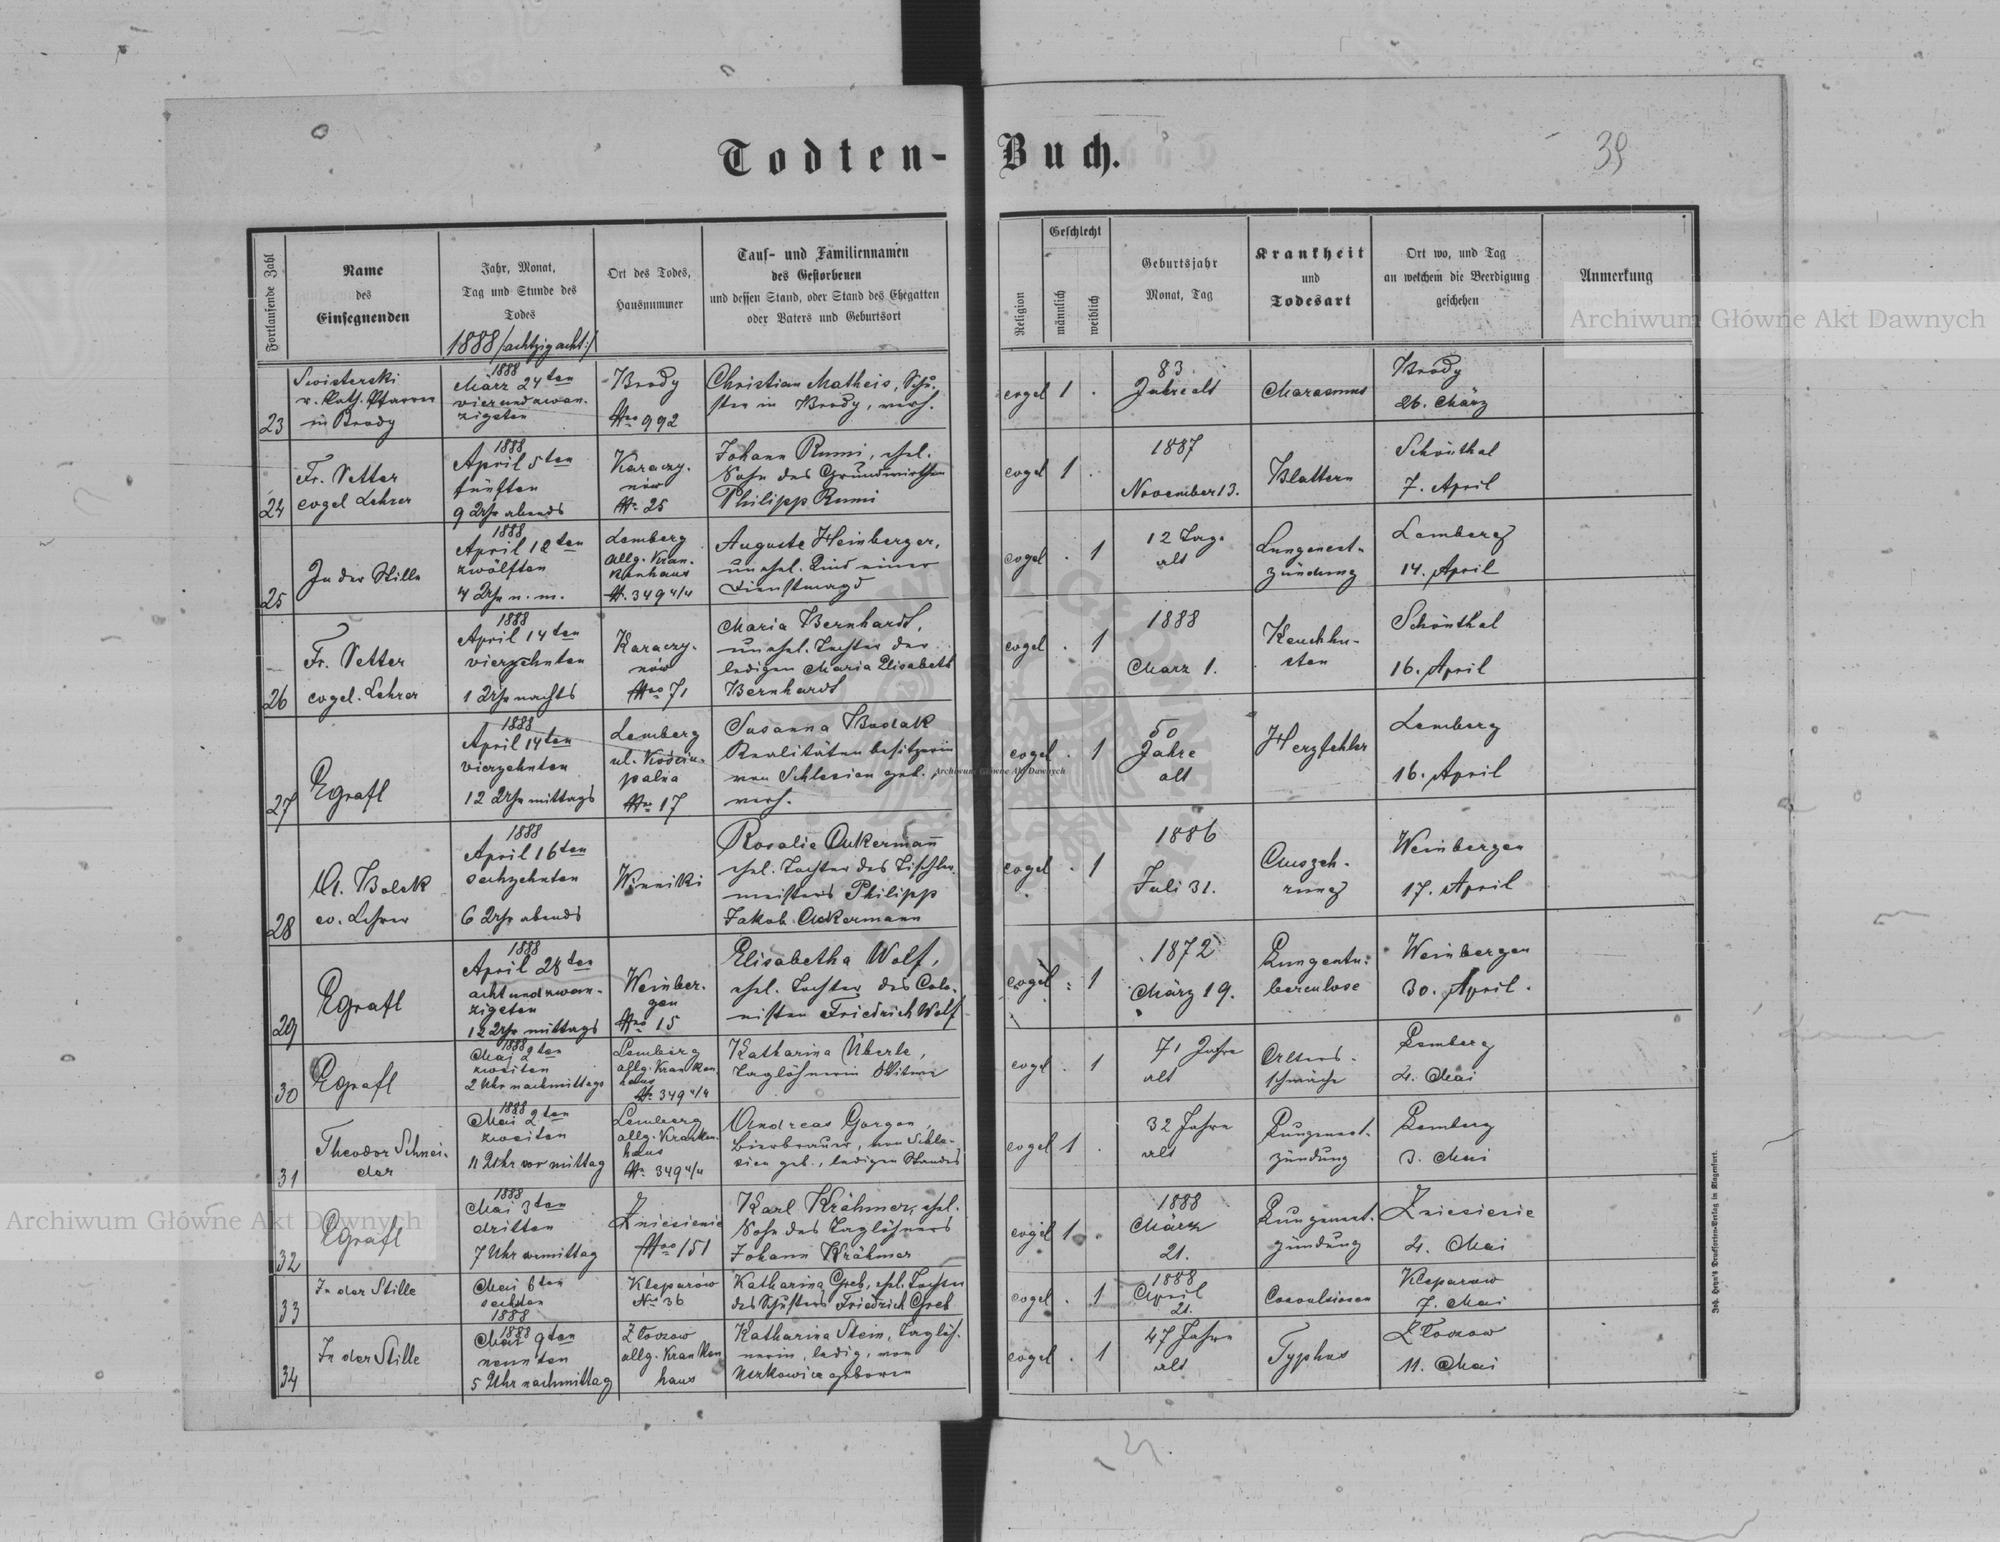 Todten-Buch.
39
Fortlaufende Zahl
Name
des
Einsegnenden
Jahr, Monat,
Tag und Stunde des
Todes
1888 /achtzigacht:/
Ort des Todes,
Hausnummer
Tauf- und Familiennamen
des Gestorbenen
und dessen Stand, oder Stand des Ehegatten
oder Vaters und Geburtsort
Religion
Geschlecht
männlich
weiblich
Geburtsjahr
Monat, Tag
Krankheit
und
Todesart
Ort wo, und Tag
an welchem die Beerdigung
geschehen
Anmerkung
23
Swisterski
r. kath. Pfarrer
in Brody
1888
März 24ten
vierundzwan-
zigsten
Brody
Nro 992
Christian Matheis, Schu-
ster in Brody, verh.
evgel 1 .
83
Jahre alt
Marasmus
Brody
26. März
24
Fr. Vetter
evgel Lehrer
1888
April 5ten
fünften
9 Uhr abends
Karaczy-
nów
No 25
Johann Rumi, ehel.
Sohn des Grundwirthen
Philipp Rumi
evgel 1 .
1887
November 13.
Blattern
Schönthal
7. April
25
In der Stille
1888
April 12ten
zwölften
4 Uhr n. m.
Lemberg
allg. Kran-
kenhaus
No. 349 4/4
Auguste Heinberger,
unehel. Kind einer
Dienstmagd
evgel . 1
12 Tage
alt
Lungenent-
zündung
Lemberg
14. April
26
Fr. Vetter
evgel. Lehrer
1888
April 14ten
vierzehnten
1 Uhr nachts
Karaczy-
nów
Nro 71
Maria Bernhardt,
unehel. Tochter der
ledigen Maria Elisabeth
Bernhardt
evgel . 1
1888
März 1.
Keuchhu-
sten
Schönthal
16. April
27
Egrafl
1888
April 14ten
vierzehnten
12 Uhr mittags
Lemberg
No 17
Susanna
Realitätenbesitzerin
von Schlesien geb.,
verh.
evgel . 1
50
Jahre
alt
Herzfehler
Lemberg
16. April
28
A. Bolek
ev. Lehrer
1888
April 16ten
sechzehnten
6 Uhr abends
Winniki
Rosalie Ackermann
ehel. Tochter des Tischler-
meisters Philipp
Jakob Ackermann
evgel . 1
1886
Juli 31.
Auszeh-
rung
Weinbergen
17. April
29
Egrafl
1888
April 28ten
achtundzwan-
zigsten
12 Uhr mittags
Weinber-
gen
Nro 15
Elisabetha Wolf,
ehel. Tochter des Colo-
nisten Friedrich Wolf
evgel . 1
1872
März 19.
Lungentu-
berculose
Weinbergen
30. April.
30
Egrafl
1888
Mai 2ten
zweiten
2 Uhr nachmittags
Lemberg
allg. Kranken-
haus
No 349 4/4
Katharina Überle,
Taglöhnerin Witwe
evgel . 1
71 Jahre
alt
Alters-
schwäche
Lemberg
4. Mai
31
Theodor Schnei-
der
1888
Mai 2ten
zweiten
11 Uhr vormittag
Lemberg
allg. Kranken-
haus
No 349 4/4
Andreas Gorgon,
Bierbrauer, von Schle-
sien geb., ledigen Standes
evgel 1 .
32 Jahre
alt
Lungenent-
zündung
Lemberg
3. Mai
32
Egrafl
1888
Mai 3ten
dritten
7 Uhr vormittag
Zniesienie
Nro 151
Karl Krähmer, ehel.
Sohn des Taglöhners
Johann Krähmer
evgel 1 .
1888
März
21.
Lungenent-
zündung
Zniesienie
4. Mai
33
In der Stille
Mai 6ten
sechsten
1888
Kleparów
No 36
Katharina Greb, ehel. Tochter
des Schusters Friedrich Greb
evgel . 1
1888
April
21.
Convulsionen
Kleparow
7. Mai
34
In der Stille
1888
Mai 9ten
neunten
5 Uhr nachmittag
Złoczow
allg. Kranken
haus
Katharina Stein, Taglöh-
nerin, ledig, von
geboren
evgel . 1
47 Jahre
alt
Typhus
Złoczow
11. Mai
Joh. Heyn's Drucksorten-Verlag in Klagenfurt.
Archiwum Główne Akt Dawnych
Archiwum Główne Akt Dawnych
Archiwum Główne Akt Dawnych